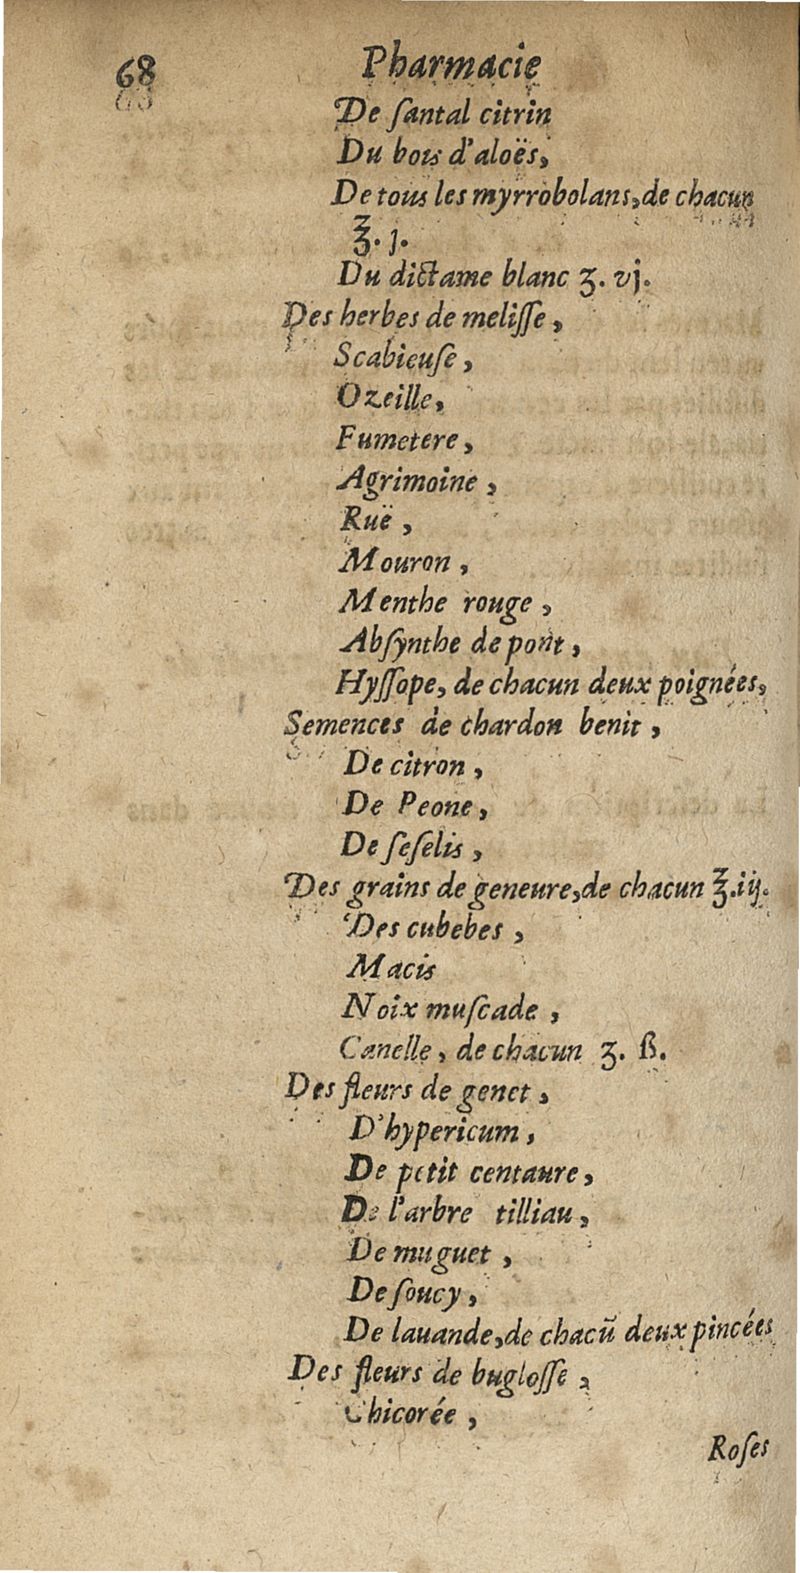 68 Pharmacie
De ſantal citrin
Du bois d'aloës,
De tous les myrrobolans, de chacun
℥. j.
Du dictame blanc ʒ. vj.
Des herbes de meliſſe,
Scabieuſe,
Ozeille,
Fumetere,
Agrimoine,
Ruë,
Mouron,
Menthe rouge,
Abſynthe de pont,
Hyſſope, de chacun deux poignées,
Semences de chardon benit,
De citron,
De Peone,
De ſeſelis,
Des grains de geneure, de chacun ℥. iij.
Des cubebes,
Macis
Noix muſcade,
Canelle, de chacun ʒ. ß.
Des fleurs de genet,
D'hypericum,
De petit centaure,
De l'arbre tilliau,
De muguet,
De ſoucy,
De lauande, de chacũ deux pincées
Des fleurs de bugloſſe,
Chicorée,
Roſes